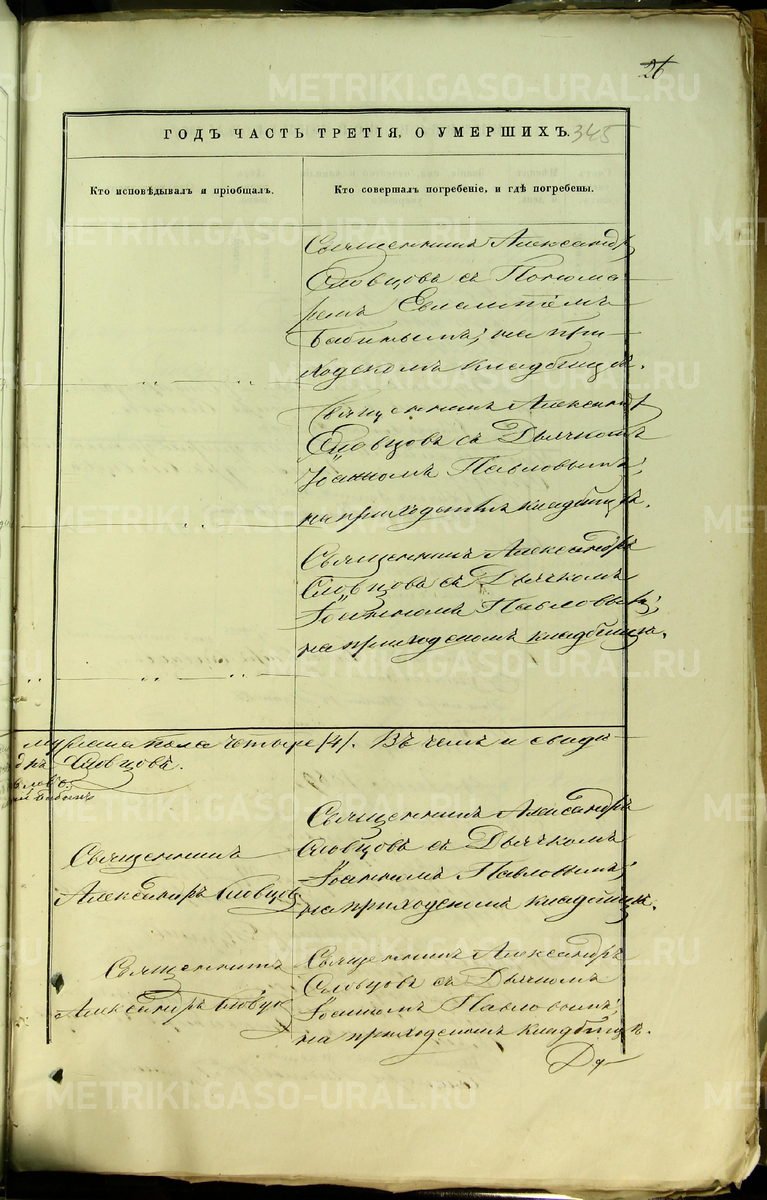 26
ГОДЪ ЧАСТЬ ТРЕТІЯ, О УМЕРШИХЪ.
345
Кто исповѣдывалъ и пріобщалъ.
Кто совершалъ погребеніе, и гдѣ погребены.
Священникъ Александръ
Словцовъ съ Понома-
ремъ Евлампіемъ
Бабинымъ; на при-
ходскомъ кладбищѣ.
Священникъ Александръ
Словцовъ съ Дьячкомъ
Іоанномъ Павловымъ;
на приходскомъ кладбищѣ.
Священникъ Александръ
Словцовъ съ Дьячкомъ
Іоанномъ Павловымъ;
на приходскомъ кладбищѣ.
мужеска пола четыре /4/. Въ чемъ и свиди-
Словцовъ.
Священникъ
Александръ Словцовъ
Священникъ Александръ
Словцовъ съ Дьячкомъ
Іоанномъ Павловымъ;
на приходскомъ кладбищѣ.
Священникъ
Александръ Словцов
Священникъ Александръ
Словцовъ съ Дьячкомъ
Іоанномъ Павловымъ;
на приходскомъ кладбищѣ.
METRIKI.GASO-URAL.RU